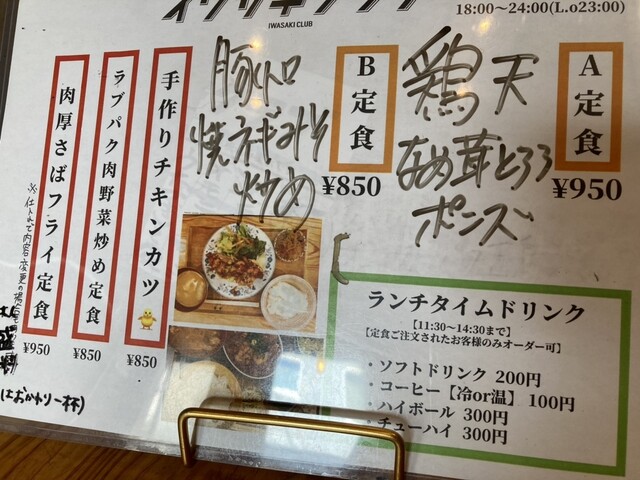 イワサキクラブ
IWASAKI CLUB
18:00~24:00(L.o23:00)
A定食
¥950
鶏天
なめ茸とろろ
ポンズ
B定食
¥850
豚トロ
焼ネギみそ
炒め
手作りチキンカツ
¥850
ラブパク肉野菜炒め定食
¥850
肉厚さばフライ定食
¥950
(はおかわり一杯)
ランチタイムドリンク
【11:30~14:30まで】
【定食ご注文されたお客様のみオーダー可】
・ソフトドリンク 200円
・コーヒー【冷or温】 100円
・ハイボール 300円
・チューハイ 300円